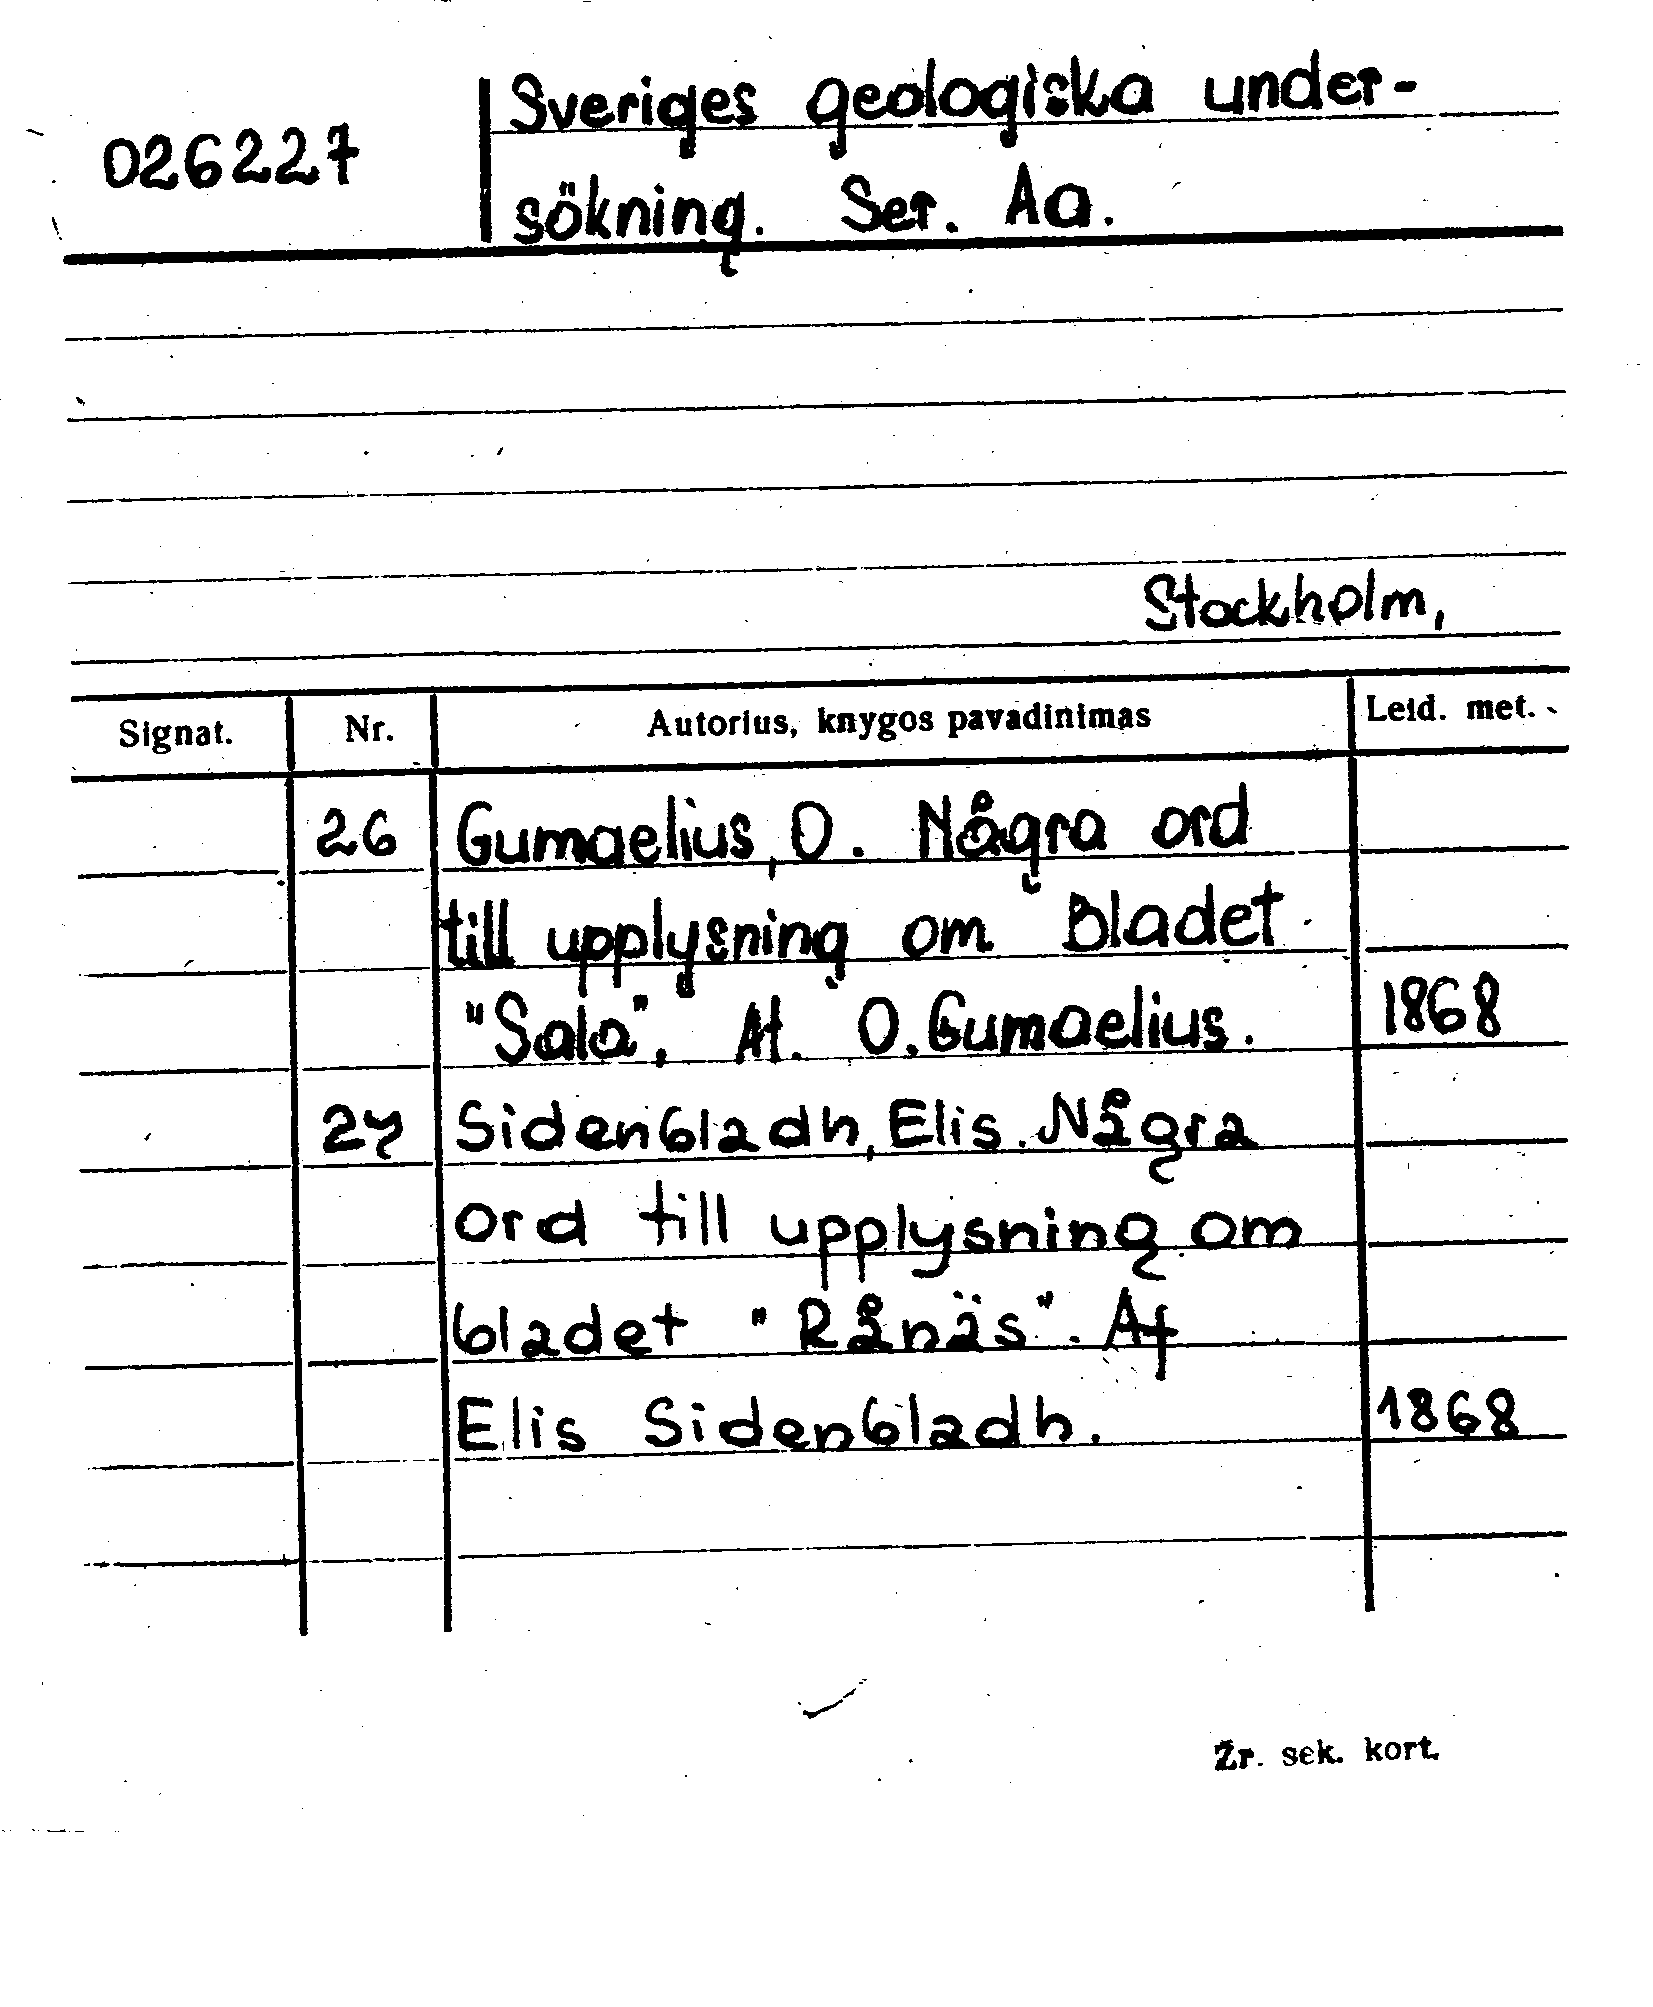 026227
Sveriges geologiska under-
sökning. Ser. Aa.
Stockholm,
Signat. Nr. Autorius, knygos pavadinimas Leid. met.
26 Gumaelius, O. Några ord
till upplysning om Bladet
"Sala". Af. O. Gumaelius. 1868
27 Sidenbladh, Elis. Några
ord till upplysning om
bladet "Rånäs". Af
Elis Sidenbladh. 1868
Žr. sek. kort.